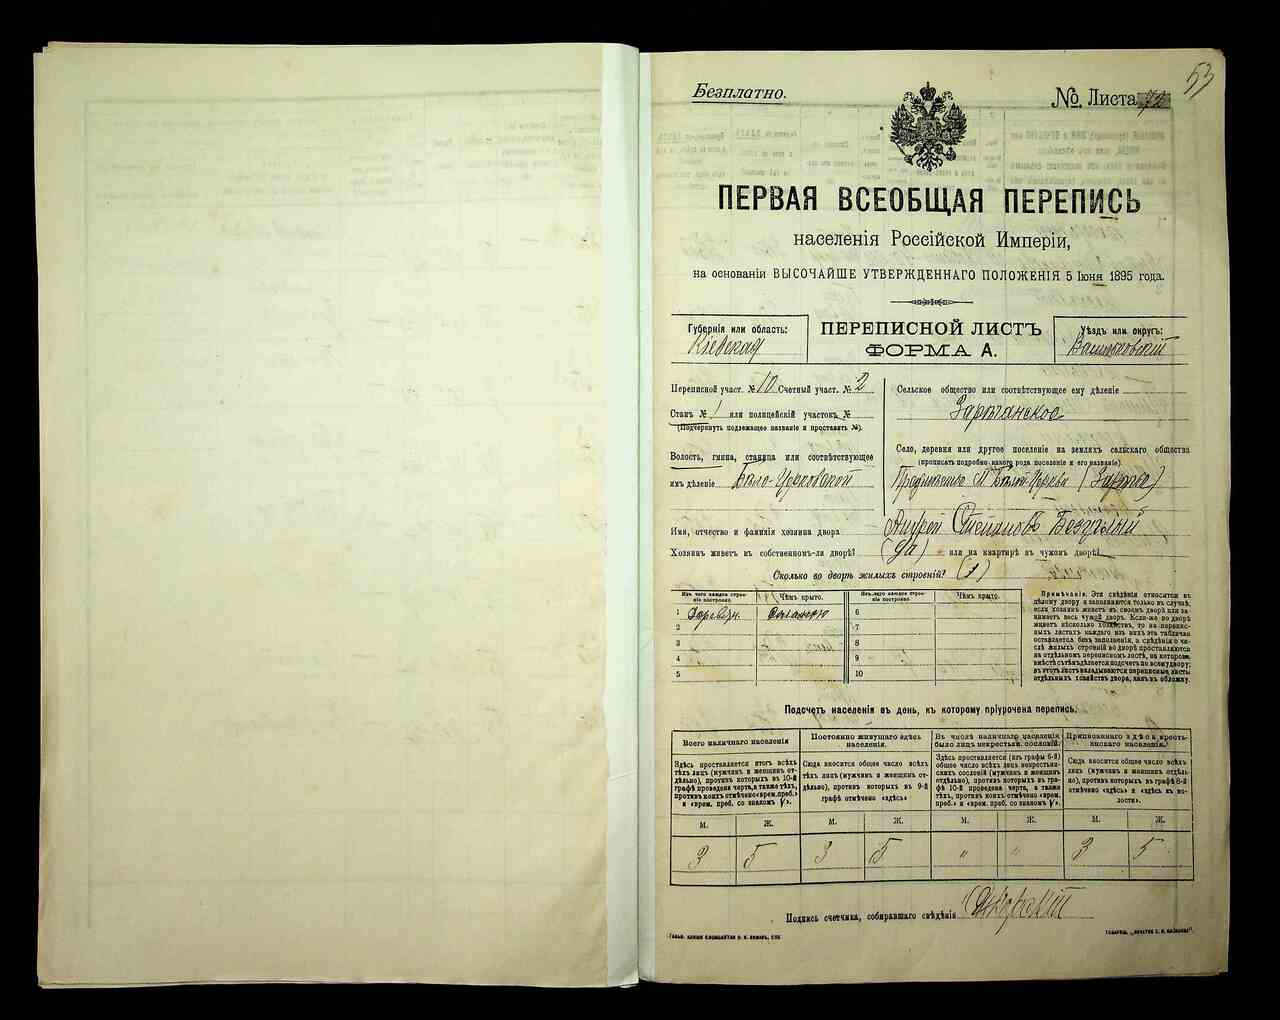 53
Безплатно.
№ Листа
ПЕРВАЯ ВСЕОБЩАЯ ПЕРЕПИСЬ
населенія Россійской Имперіи,
на основаніи ВЫСОЧАЙШЕ УТВЕРЖДЕННАГО ПОЛОЖЕНІЯ 5 Іюня 1895 года.
Губернія или область:
Кіевская
ПЕРЕПИСНОЙ ЛИСТЪ
ФОРМА А.
Уѣздъ или округъ:
Васильковскій
Переписной участ. № 10 Счетный участ. № 2
Станъ № 1 или полицейскій участокъ №
(Подчеркнуть подлежащее названіе и проставить №).
Волость, гмина, станица или соотвѣтствующее
имъ дѣленіе Бѣло-Церковской
Сельское общество или соотвѣтствующее ему дѣленіе
Зарѣчанское
Село, деревня или другое поселеніе на земляхъ сельскаго общества
(прописать подробно какого рода поселеніе и его названіе)
М Бѣлой-Церкви
Имя, отчество и фамилія хозяина двора Андрей Степановъ
Хозяинъ живетъ въ собственномъ-ли дворѣ? (да) или на квартирѣ въ чужомъ дворѣ?
Сколько во дворѣ жилыхъ строеній? (1)
Изъ чего каждое строеніе построено.
Чѣмъ крыто.
Изъ чего каждое строеніе построено.
Чѣмъ крыто.
1 Деревян. Соломою 6
2 7
3 8
4 9
5 10
Примѣчаніе. Эти свѣдѣнія относятся къ
цѣлому двору и заполняются только въ случаѣ,
если хозяинъ живетъ въ своемъ дворѣ или занимаетъ
весь чужой дворъ. Если-же во дворѣ
живетъ нѣсколько хозяйствъ, то на переписныхъ
листахъ каждаго изъ нихъ эта табличка
оставляется безъ заполненія, а свѣдѣнія о числѣ
жилыхъ строеній во дворѣ проставляются
на отдѣльномъ переписномъ листѣ, на которомъ
вмѣстѣ съ тѣмъ дѣлается подсчетъ по всему двору;
въ этотъ листъ вкладываются переписные листы
отдѣльныхъ хозяйствъ двора, какъ въ обложку.
Подсчетъ населенія въ день, къ которому пріурочена перепись.
Всего наличнаго населенія
Здѣсь проставляется итогъ всѣхъ
тѣхъ лицъ (мужчинъ и женщинъ отдѣльно),
противъ которыхъ въ 10-й
графѣ проведена черта, а также тѣхъ,
противъ коихъ отмѣчено «врем. преб.»
и «врем. преб. со знакомъ V».
Постоянно живущаго здѣсь
населенія.
Сюда вносится общее число всѣхъ
тѣхъ лицъ (мужчинъ и женщинъ отдѣльно),
противъ которыхъ въ 9-й
графѣ отмѣчено «здѣсь»
Въ числѣ наличнаго населенія
было лицъ некрестьян. сословій.
Здѣсь проставляется (изъ графы 6-й)
общее число всѣхъ лицъ некрестьянскихъ
сословій (мужчинъ и женщинъ
отдѣльно), противъ которыхъ въ графѣ
10-й проведена черта, а также
тѣхъ, противъ коихъ отмѣчено «врем.
преб.» и «врем. преб. со знакомъ V».
Приписаннаго здѣсь крестьянскаго
населенія.
Сюда вносится общее число всѣхъ
лицъ (мужчинъ и женщинъ отдѣльно),
противъ которыхъ въ графѣ 8-й
отмѣчено «здѣсь» и «здѣсь къ волости».
М. Ж. М. Ж. М. Ж. М. Ж.
3 5 3 5 " " 3 5
Подпись счетчика, собиравшаго свѣдѣнія